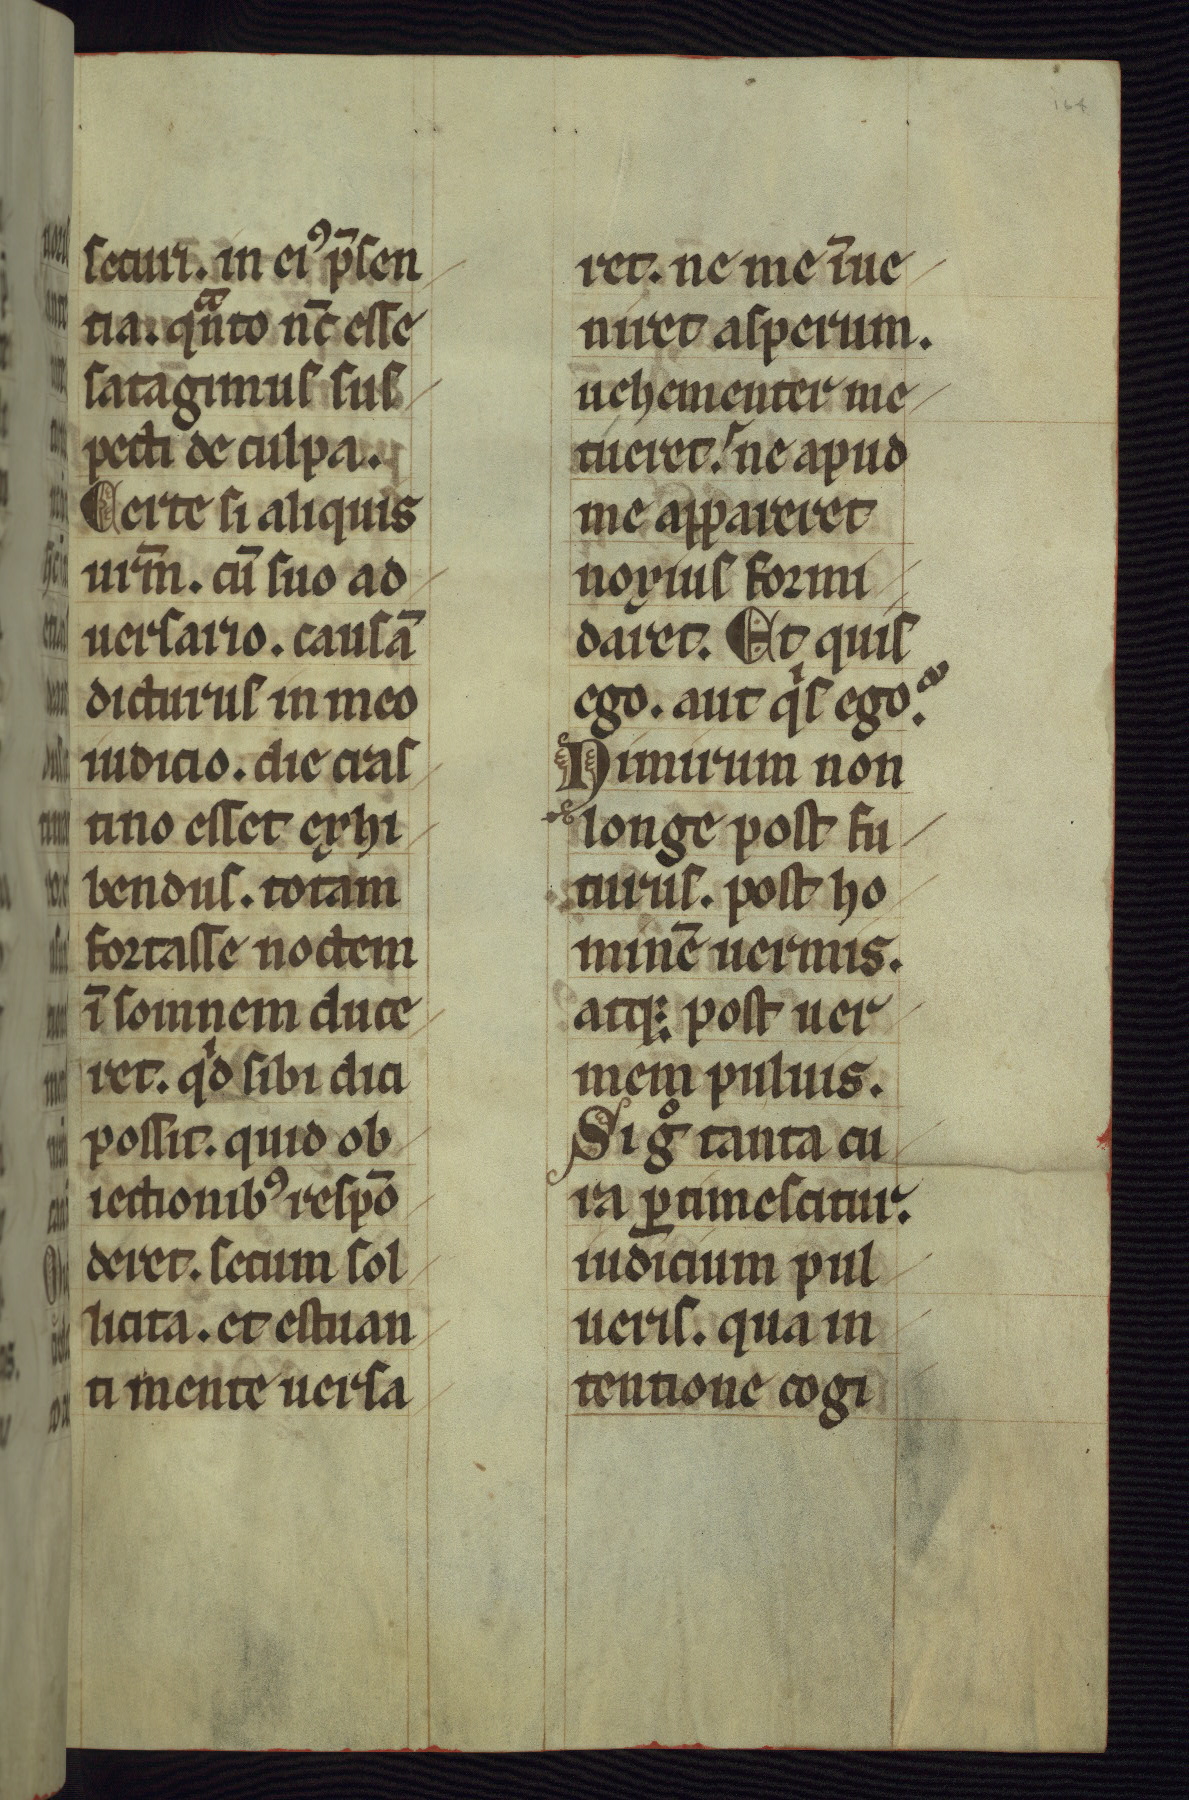 securi. in eiꝰ p̄sen
tia. qͣnto nc̄ esse
satagimus sus
pecti de culpa.
Certe si aliquis
urm̄. cū suo ad
uersario. causā
dicturus in meo
iudicio. die cras
tino esset exhi
bendus. totam
fortasse noctem
ī somnem duce
ret. qͥd sibi dici
possit. quid ob
iectionibꝰ respō
deret. secum sol
licita. et estuan
ti mente uersa
164
ret. ne me īue
niret asperum.
uehementer me
tueret. ne apud
me appareret
noxius formi
daret. Et quis
ego. aut qͥs ego?
Nimirum non
longe post fu
turus. post ho
minē uermis.
atq; post uer
mem puluis.
Si gͦ tanta cu
ra ꝑtimescitur.
iudicium pul
ueris. qua in
tentione cogi